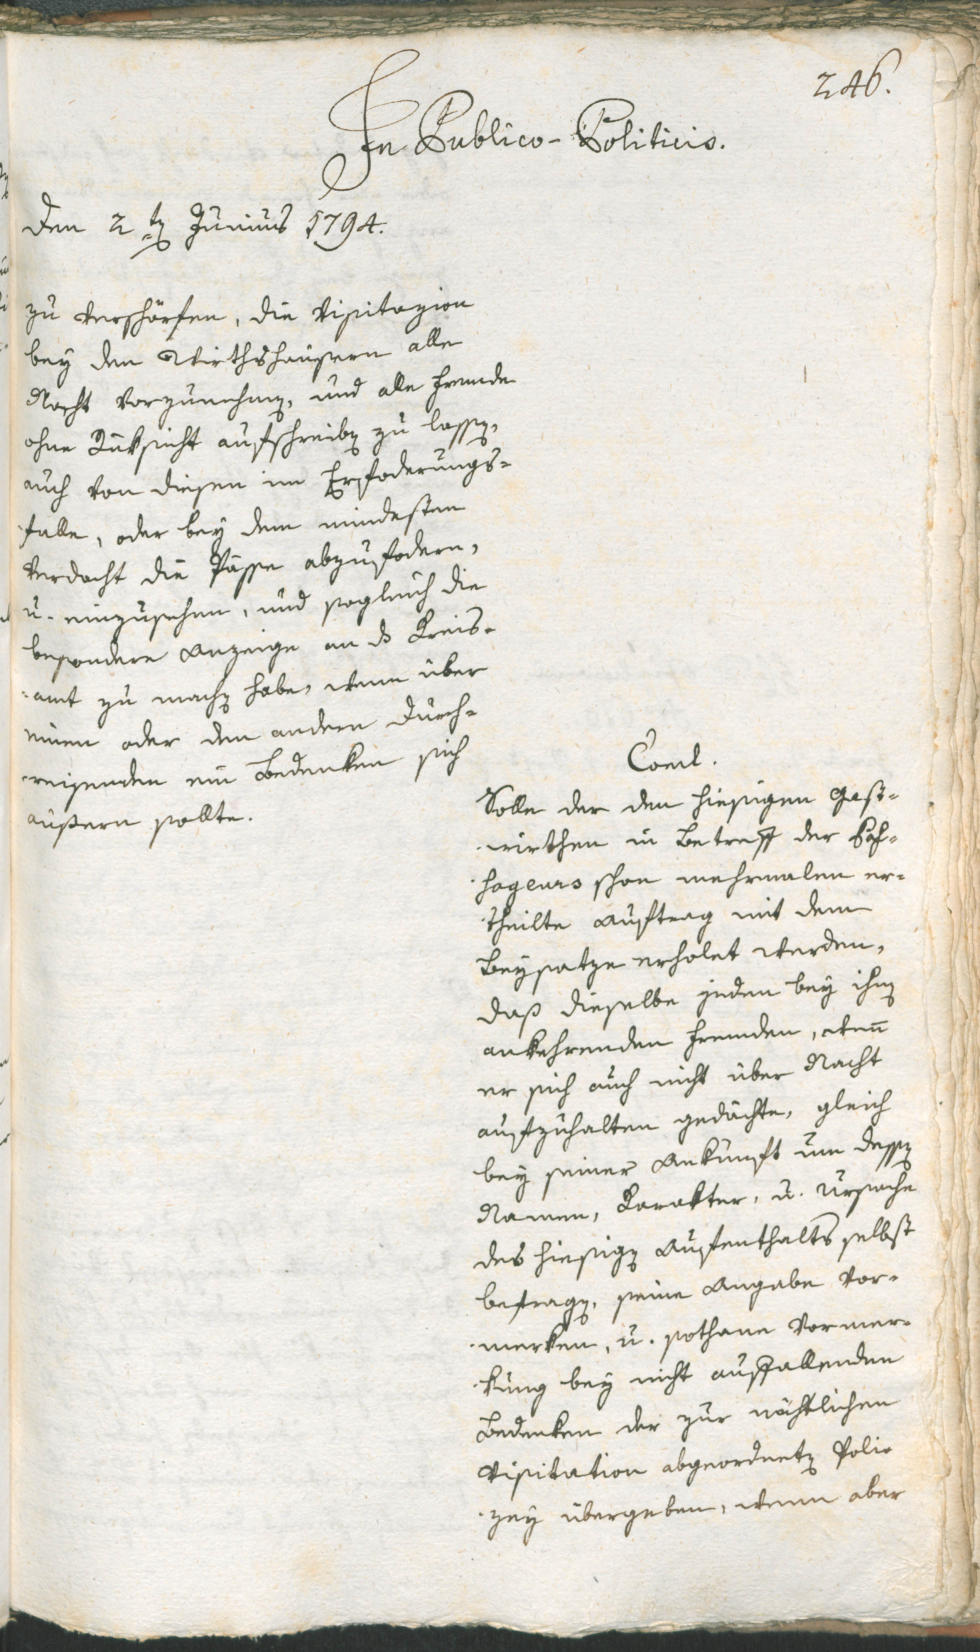 246.
In Publico-Politicis.
Den 2ten Junius 1794.
zu verschärfen, die Visitazion
bey den Wirthshäusern alle
Nacht vorzunehmen, und alle Fremde
ohne Rüksicht aufschreiben zu lassen,
auch von diesen im Erfoderungs-
falle, oder bey dem mindesten
Verdacht die Pässe abzufodern,
u. einzusehen, und sogleich die
besondere Anzeige an das Kreis-
amt zu machen habe, wenn über
einen oder den andern Durch-
reisenden ein Bedenken sich
äußern sollte.
Concl.
Solle der den hiesigen Gast-
wirthen in Betreff der Pas-
sageurs schon mehrmalen er-
theilte Auftrag mit dem
Beysatze erholet werden,
daß dieselbe jeden bey ihnen
ankehrenden Fremden, wenn
er sich auch nicht über Nacht
aufzuhalten gedächte, gleich
bey seiner Ankunft um dessen
Namen, Karakter, u. Ursache
des hiesigen Aufenthalts selbst
befragen, seine Angabe vor-
merken, u. sothane Vormer-
kung bey nicht auffallenden
Bedenken der zur nächtlichen
Visitation abgeordneten Poli-
zey übergeben, wenn aber